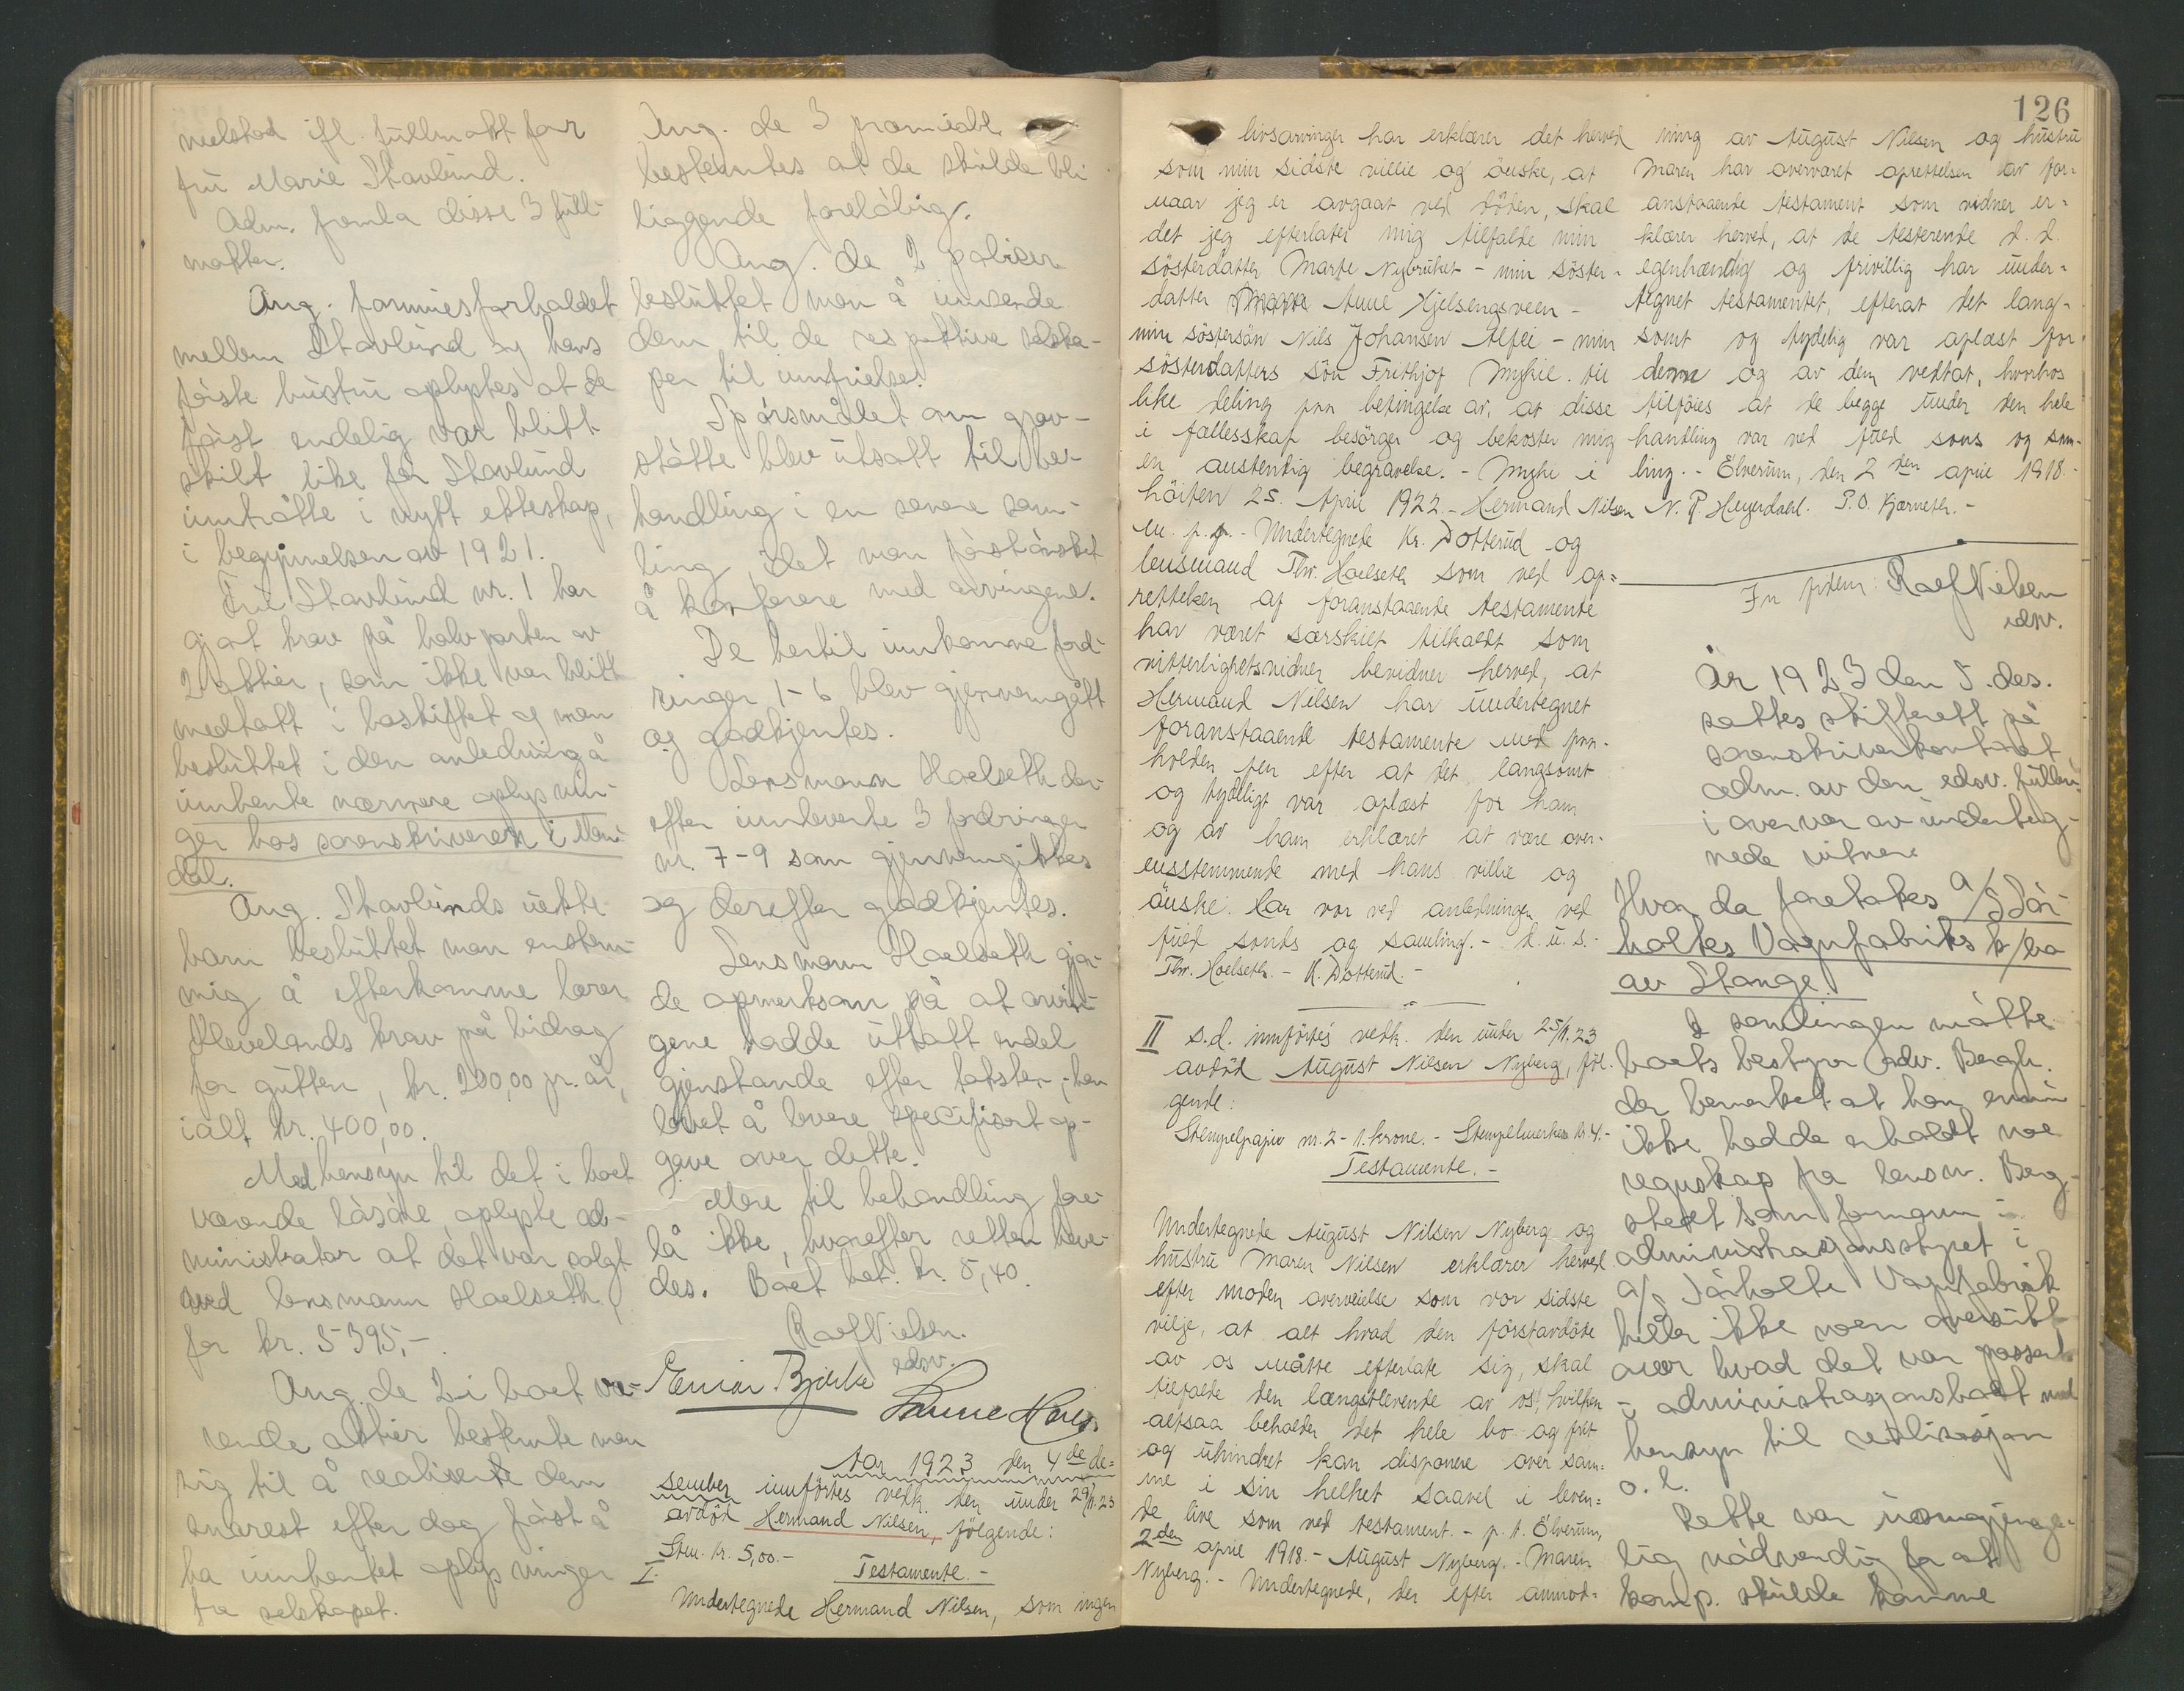 melstad ifl. fullmakt for
fru Marie Stavlund.
Adm. fremla disse 3 full-
makter.
Ang. formuesforholdet
mellem Stavlund og hans
første hustru oplystes at de
først endelig var blitt
skilt like før Stavlund
inntrådte i nytt ekteskap,
i begynnelsen av 1921.
Fru Stavlund nr. 1 har
gjort krav på halvparten av
2 aktier, som ikke var blitt
medtatt i boskiftet og man
besluttet i den anledning å
innhente nærmere oplysnin-
ger hos sorenskriveren i Man-
dal.
Ang. Stavlunds uekte
barn besluttet man enstem-
mig å efterkomme lærer
Klevelands krav på bidrag
for gutten, kr. 200,00 pr. år,
ialt kr. 400,00.
Med hensyn til det i boet
værende løsøre, oplyste ad-
ministrator at det var solgt
ved lensmann Hoelseth
for kr. 5395,-.
Ang. de 2 i boet væ-
rende aktier bestemte man
sig til å realisere dem
snarest efter dog først å
ha innhentet oplysninger
fra selskapet.
Ang. de 3 premieobl.
bestemtes at de skulde bli
liggende foreløbig.
Ang. de 2 poliser
besluttet man å innsende
dem til de respektive selska-
per til innfrielse.
Spørsmålet om grav-
støtte blev utsatt til be-
handling i en senere sam-
ling idet man først ønsket
å konferere med arvingene.
De hertil innkomne ford-
ringer 1-6 blev gjennemgått
og godkjentes.
Lensmann Hoelseth der-
efter innleverte 3 fordringer
nr. 7-9 som gjennemgikkes
og derefter godkjentes.
Lensmann Hoelseth gjor-
de opmerksom på at arvin-
gene hadde uttatt endel
gjenstande efter takster; han
lovet å levere spesifisert op-
gave over dette.
Mere til behandling fore-
lå ikke, hvorefter retten heve-
des. Boet bet. kr. 5,40.
Ralf Nielsen.
edsv.
Einar Bjørke
Aar 1923 den 4de de-
sember innførtes vedk. den under 29/11.23
avdød Hermand Nilsen, følgende:
Stm. kr. 5,00.-
I. Testamente.-
Undertegnede Hermand Nilsen, som ingen
126
livsarvinger har erklærer det herved
som min sidste villie og ønske, at
naar jeg er avgaat ved døden, skal
det jeg efterlater mig tilfalde min
søsterdatter Marte Nybruket - min søster-
datter Anne Kjelsengsveen -
min søstersøn Nils Johansen Alfei - min
søsterdatters søn Frithjof Myhre. til
like deling paa betingelse av, at disse
i fællesskap besørger og bekoster mig
en anstendig begravelse. - Myhre i
høiten 25. April 1922. - Hermand Nilsen
m. p. p. - Undertegnede Kr. Dotterud og
lensmand Thv. Hoelseth som ved op-
rettelsen af foranstaaende testamente
har været særskilt tilkaldt som
vitterlighetsvidner bevidner herved, at
Hermand Nilsen har undertegnet
foranstaaende testamente med paa-
holden pen efter at det langsomt
og tydeligt var oplæst for ham
og av ham erklæret at være over-
ensstemmende med hans villie og
ønske. Han var ved anledningen ved
fuld sands og samling. - d. u. s. -
Thv. Hoelseth. - K. Dotterud. -
II s.d. innførtes vedk. den under 25/11.23
avdød August Nilsen Nyberg, føl-
gende:
Stempelpapir nr. 2 - 1. krone. - Stempelmerke kr 4.-
Testamente.-
Undertegnede August Nilsen Nyberg og
hustru Maren Nilsen erklærer herved
efter moden overveielse som vor sidste
vilje, at alt hvad den førstavdøde
av os måtte efterlate sig, skal
tilfalde den længstlevende av os, hvilken
altsaa beholder det hele bo og frit
og uhindret kan disponere over sam-
me i sin helhet saavel i leven-
de live som ved testament. - p. t. Elverum,
2den april 1918. - August Nyberg. - Maren
Nyberg. - Undertegnede, der efter anmod-
ning av August Nilsen og hustru
Maren har overværet oprettelsen av for-
anstaaende testament som vidner er-
klærer herved, at de testerende d. d.
egenhændig og frivillig har under-
tegnet testamentet, efterat det lang-
somt og tydelig var oplæst for
dem og av dem vedtat, hvorhos
tilføies at de begge under den hele
handling var ved fuld sans og sam-
ling. - Elverum, den 2den april 1918. -
N. P. Heyerdahl. P. O. Kjærneth. -
In fidem Ralf Nielsen
edsv.
År 1923 den 5. des.
sattes skifterett på
sorenskriverkontoret
adm. av den edsv. fullm.
i overvær av underteg-
nede vitner.
Hvor da foretakes a/s Sør-
holtes Vognfabriks k/bo
av Stange.
I samlingen møtte
boets bestyrer adv. Bergh.
der bemerket at han ennu
ikke hadde erholdt noe
regnskap fra lensm. Berg-
stedt som formann i
administrasjonsstyret i
a/s Sørholte Vognfabrik
heller ikke noen oversikt
over hvad det var passert
i administrasjonsboet med
hensyn til realisasjon
o. l.
Dette var uomgjenge-
lig nødvendig for at
komp. skulde komme